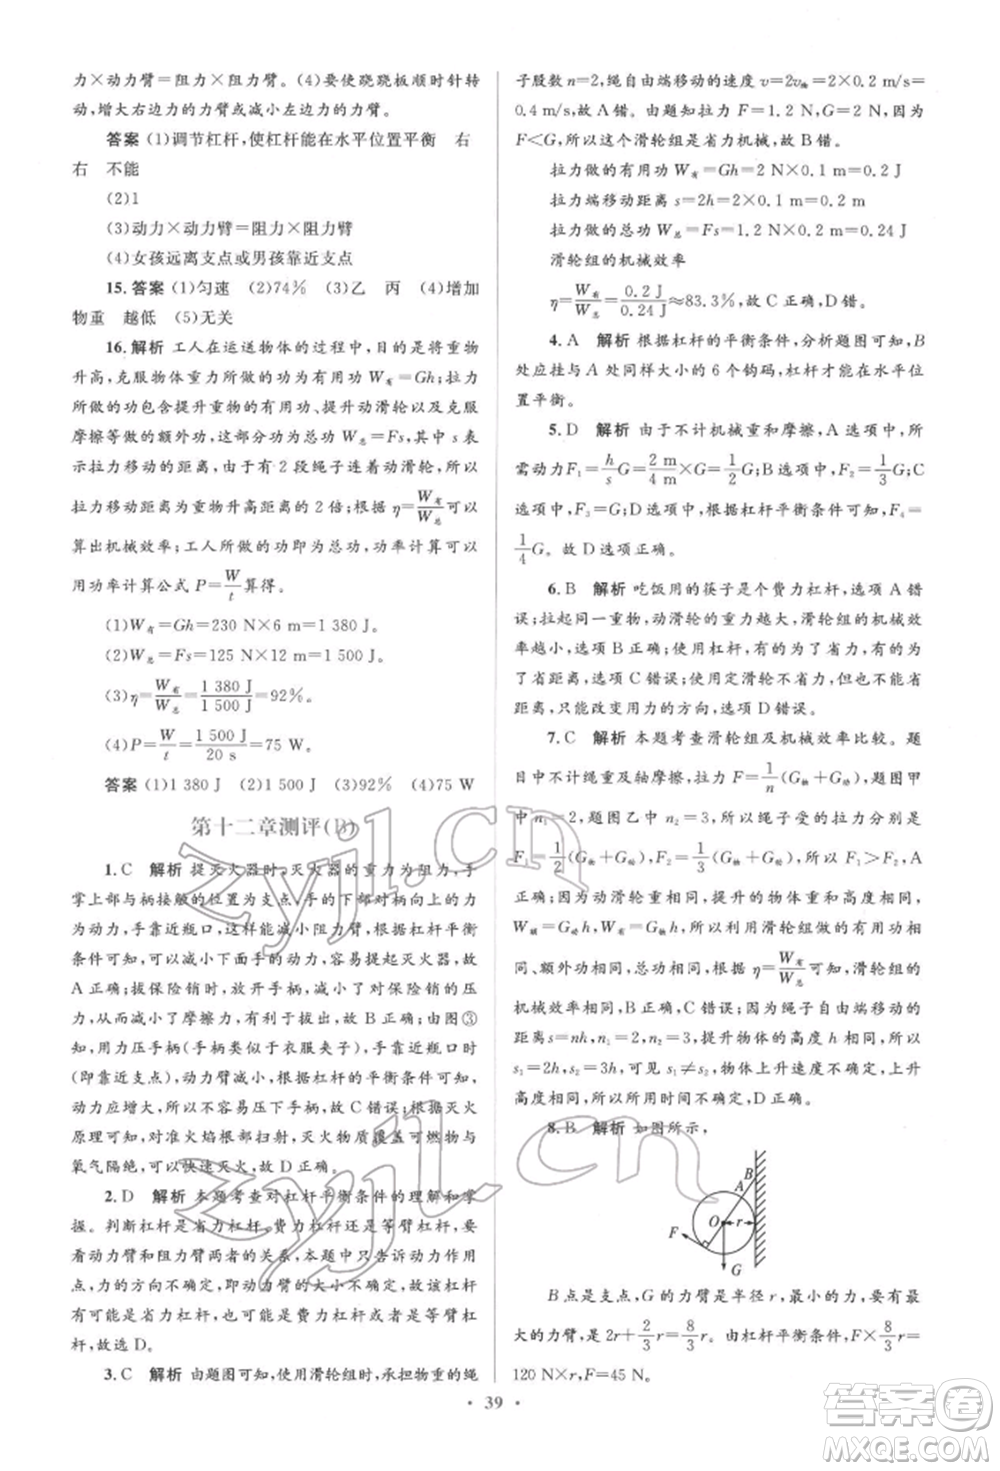 力×动力臂=阻力×阻力臂。(4)要使跷跷板顺时针转
动,增大右边力的力臂或减小左边力的力臂。
答案 (1)调节杠杆,使杠杆能在水平位置平衡 右
右 不能
(2)1
(3)动力×动力臂=阻力×阻力臂
(4)女孩远离支点或男孩靠近支点
15.答案 (1)匀速 (2)74% (3)乙 丙 (4)增加
物重 越低 (5)无关
16.解析 工人在运送物体的过程中,目的是将重物
升高,克服物体重力所做的功为有用功W有=Gh;拉力
所做的功包含提升重物的有用功、提升动滑轮以及克服
摩擦等做的额外功,这部分功为总功W总=Fs,其中s表
示拉力移动的距离,由于有2段绳子承担动滑轮,所以
拉力移动距离为重物升高距离的2倍;根据η=W有/W总可以
算出机械效率;工人所做的功即为总功,功率计算可以
用功率计算公式P=W/t算得。
(1)W有=Gh=230 N×6 m=1 380 J。
(2)W总=Fs=125 N×12 m=1 500 J。
(3)η=W有/W总=1 380 J/1 500 J=92%。
(4)P=W/t=1 500 J/20 s=75 W。
答案 (1)1 380 J (2)1 500 J (3)92% (4)75 W
第十二章测评(B)
1.C 解析 提灭火器时,灭火器的重力为阻力,手
掌上部与柄接触的位置为支点,手的下部对柄的力为动
力,手靠近瓶口,这样能减小阻力臂,根据杠杆平衡
条件可知,可以减小下面手的动力,方便提起灭火器,故
A正确;拔保险销时,放开手柄,减小了手柄对保险销的压
力,从而减小了摩擦力,故B正确;由图③
可知,当下压手柄(手柄类似于衣服夹子),手靠近瓶口时
(即靠近支点),动力臂变小,根据杠杆的平衡条件可知,动
力应增大,所以不容易压下手柄,故C错误;根据灭火
原理可知,对准火焰根部扫射,灭火物质覆盖可燃物,与
氧气隔绝,可以快速灭火,故D正确。
2.D 解析 本题考查对杠杆平衡条件的理解和掌
握。判断杠杆是省力杠杆、费力杠杆还是等臂杠杆,要
看动力臂和阻力臂两者的关系,本题中只告诉动力作用
点,力的方向不确定,即动力臂的大小不确定,故该杠杆
有可能是省力杠杆,也可能是费力杠杆或者是等臂杠
杆,故选D。
3.C 解析 由题图可知,使用滑轮组时,承担物重的绳
子股数n=2,绳自由端移动的速度v=2v物=2×0.2 m/s=
0.4 m/s,故A错。由题知拉力F=1.2 N,G=2 N,因为
F<G,所以这个滑轮组是省力机械,故B错。
拉力做的有用功W有=Gh=2 N×0.1 m=0.2 J
拉力端移动距离s=2h=2×0.1 m=0.2 m
拉力做的总功W总=Fs=1.2 N×0.2 m=0.24 J
滑轮组的机械效率
η=W有/W总=0.2 J/0.24 J≈83.3%,故C正确,D错。
4.A 解析 根据杠杆的平衡条件,分析题图可知,B
处应挂与A处同样大小的6个钩码,杠杆才能在水平位
置平衡。
5.D 解析 由于不计机械重和摩擦,A选项中,所
需动力F1=h/sG=2 m/4 m×G=1/2G;B选项中,F2=1/3G;C
选项中,F3=G;D选项中,根据杠杆平衡条件可知,F4=
1/4G。故D选项正确。
6.B 解析 吃饭用的筷子是个费力杠杆,选项A错
误;拉起同一重物,动滑轮的重力越大,滑轮组的机械效
率越小,选项B正确;使用杠杆时,有的为了省力,有的为
了省距离,选项C错误;使用定滑轮不省力,也不能省
距离,只能改变用力的方向,选项D错误。
7.C 解析 本题考查滑轮组及机械效率比较。题
目中不计绳重及轴摩擦,拉力F=1/n(G物+G动),题图甲
中,n1=2,题图乙中,n2=3,所以绳子受的拉力分别是
F1=1/2(G物+G动),F2=1/3(G物+G动),所以F1>F2,故A
错误;因为动滑轮重相同,提升的物体重和高度相同,
W额=G动h,W有=G物h,所以利用滑轮组做的有用功相
同、额外功相同,总功相同,根据η=W有/W总可知,滑轮组的
机械效率相同,故C正确,B错误;因为绳子自由端移动的
距离s=nh,n1=2,n2=3,提升物体的高度h相同,所以
s1=2h,s2=3h,则s1≠s2,物体上升速度不确定,上升
高度相同,所以所用时间可能不同,故D错误。
8.B 解析 如图所示,
B
A
O
r
F
G
B点是支点,G的力臂是半径r,最小的力F,要有最
大的力臂,为2r+2/3r=8/3r。由杠杆平衡条件,F×8/3r=
120 N×r,F=45 N。
· 39 ·
zyjl.cn
zyjl.cn
答案圈
MXQE.COM